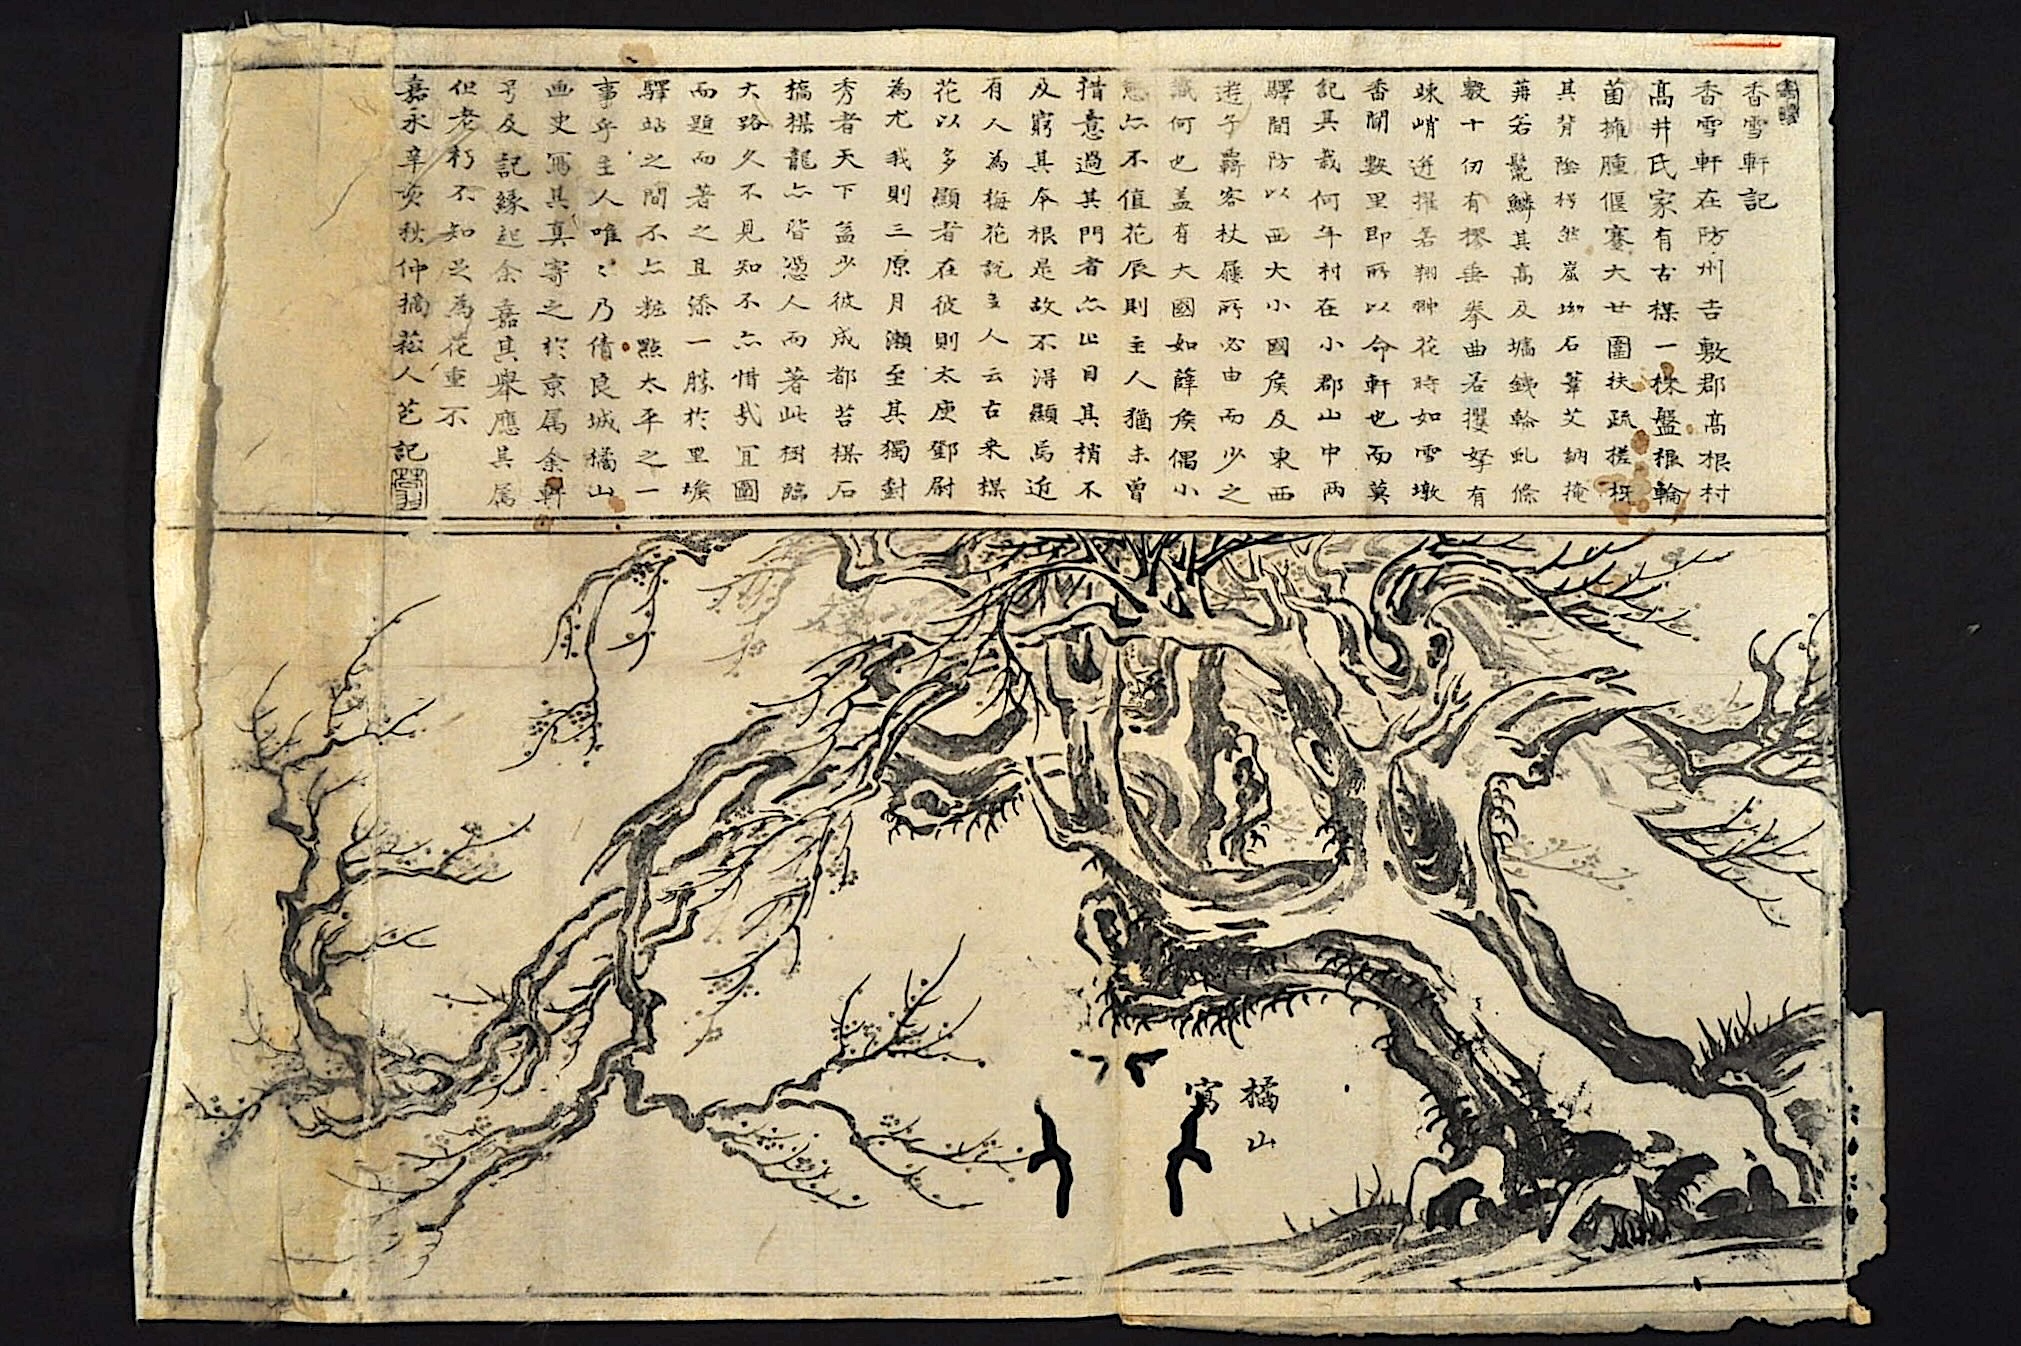 香雪軒記
香雪軒在防州吉敷郡髙根村
髙井氏家有古楳一株盤根輪
菌擁腫偃蹇大廿圍扶疏槎枒
其背陰枵然嵐坳石葦艾納掩
苒若鬣鱗其高及墻鉄輪虬條
數十仞有樛垂拳曲若攫拏有
竦峭逆擢若翔翀花時如雪墩
香聞數里即所以命軒也而莫
記其栽何年村在小郡山中兩
驛間防以西大小國矦及東西
遊子羇客杖屨所必由而少之
識何也盖有大國如薛矦偶小
憩亦不值花辰則主人猶未曾
措意過其門者亦止目其梢不
及窮其夲根是故不淂顯焉近
有人為梅花說主人云古来楳
花以多顯者在彼則太庾鄧尉
為尤我則三原月瀨至其獨對
秀者天下盖少彼成都苔楳石
槁楳龍亦皆憑人而著此樹臨
大路久不見知不亦惜哉冝圖
而題而著之且添一勝於里堠
驛站之間不亦粧點太平之一
事乎主人唯〻乃倩良城橘山
画史冩其真寄之於京属余軒
号及記縁起余嘉其舉應其属
但老朽不知足為花重不
嘉永辛亥秋仲摘菘人芑記
橘山
寫